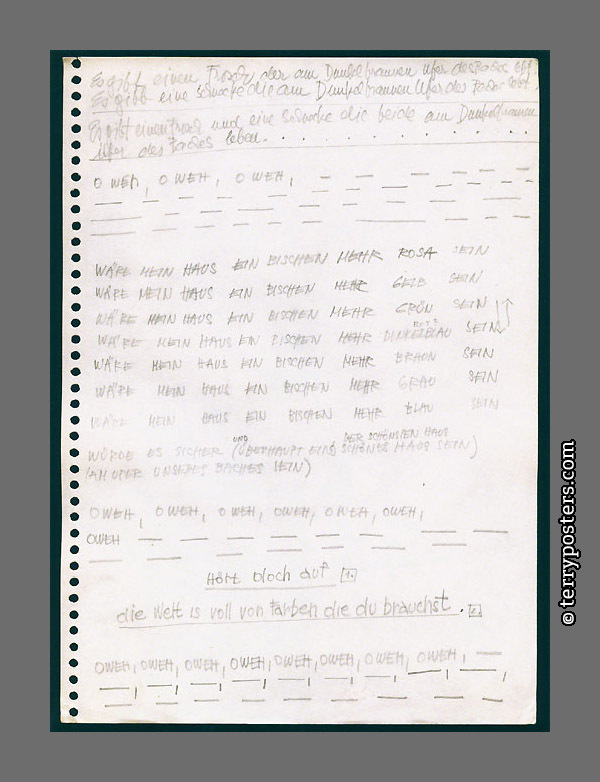 Es gibt einen Frosch der am Dunkelbraunen Ufer des Baches lebt.
Es gibt eine Schnecke die am Dunkelbraunen Ufer des Baches lebt.
Es gibt einen Frosch und eine Schnecke die beide am Dunkelbraunen
Ufer des Baches leben. . . . . . . . . . . .
O WEH, O WEH, O WEH,
WÄRE MEIN HAUS EIN BISCHEN MEHR ROSA SEIN
WÄRE MEIN HAUS EIN BISCHEN MEHR GELB SEIN
WÄRE MEIN HAUS EIN BISCHEN MEHR GRÜN SEIN
WÄRE MEIN HAUS EIN BISCHEN MEHR DUNKELBLAU SEIN
WÄRE MEIN HAUS EIN BISCHEN MEHR BRAUN SEIN
WÄRE MEIN HAUS EIN BISCHEN MEHR GRAU SEIN
WÄRE MEIN HAUS EIN BISCHEN MEHR BLAU SEIN
UND DER SCHÖNSTEN HAUS
WÜRDE ES SICHER (ÜBERHAUPT EIN SCHÖNES HAUS SEIN)
(AM UFER UNSERES BACHES SEIN)
OWEH, OWEH, OWEH, OWEH, OWEH, OWEH,
OWEH
Hört bloch auf 1.
die Welt is voll von Farben die du brauchst.
OWEH, OWEH, OWEH, OWEH, OWEH, OWEH, OWEH, OWEH,
© terryposters.com